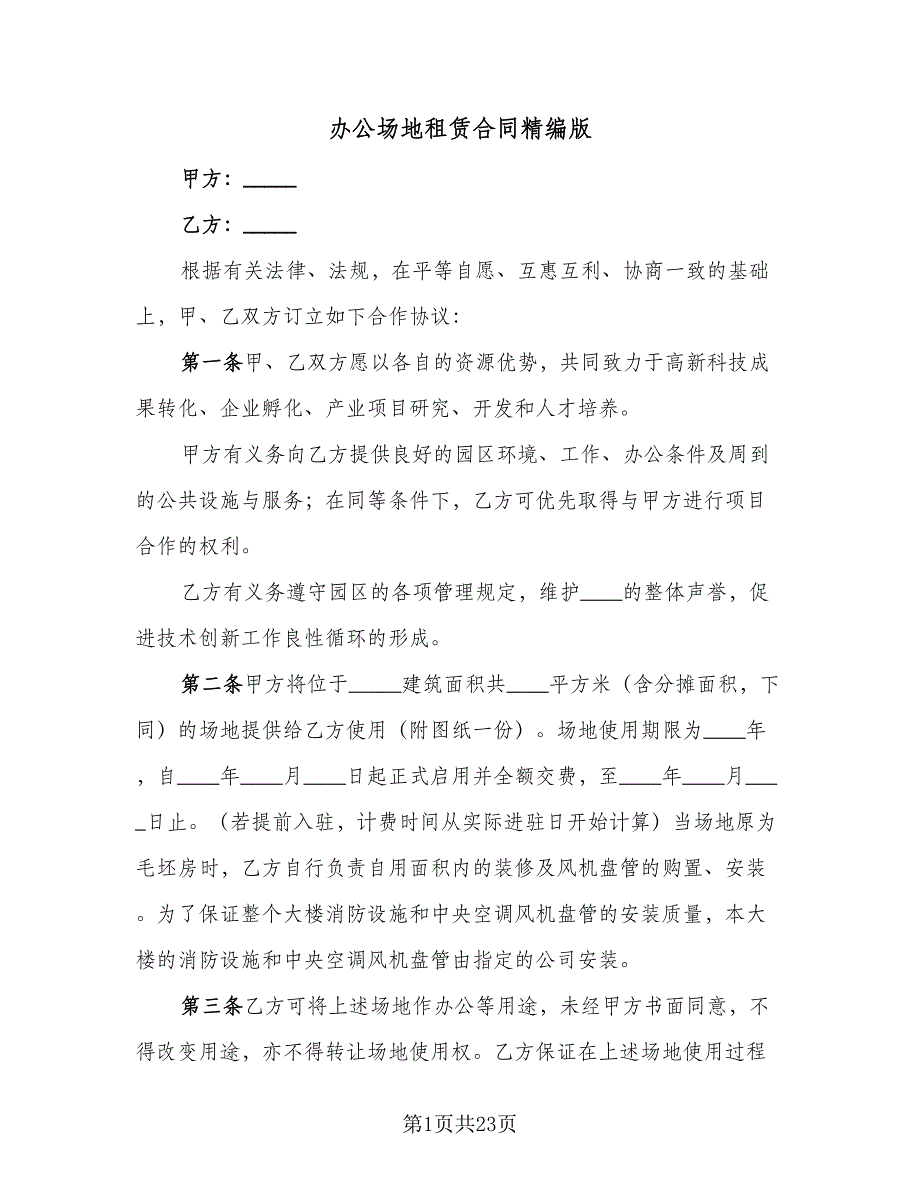 办公场地租赁合同精编版
甲方：_____
乙方：_____
根据有关法律、法规，在平等自愿、互惠互利、协商一致的基础
上，甲、乙双方订立如下合作协议：
第一条甲、乙双方愿以各自的资源优势，共同致力于高新科技成
果转化、企业孵化、产业项目研究、开发和人才培养。
甲方有义务向乙方提供良好的园区环境、工作、办公条件及周到
的公共设施与服务；在同等条件下，乙方可优先取得与甲方进行项目
合作的权利。
乙方有义务遵守园区的各项管理规定，维护____的整体声誉，促
进技术创新工作良性循环的形成。
第二条甲方将位于_____建筑面积共____平方米（含分摊面积，下
同）的场地提供给乙方使用（附图纸一份）。场地使用期限为____年
，自____年____月____日起正式启用并全额交费，至____年____月___
_日止。（若提前入驻，计费时间从实际进驻日开始计算）当场地原为
毛坯房时，乙方自行负责自用面积内的装修及风机盘管的购置、安装
。为了保证整个大楼消防设施和中央空调风机盘管的安装质量，本大
楼的消防设施和中央空调风机盘管由指定的公司安装。
第三条乙方可将上述场地作办公等用途，未经甲方书面同意，不
得改变用途，亦不得转让场地使用权。乙方保证在上述场地使用过程
第1页共23页